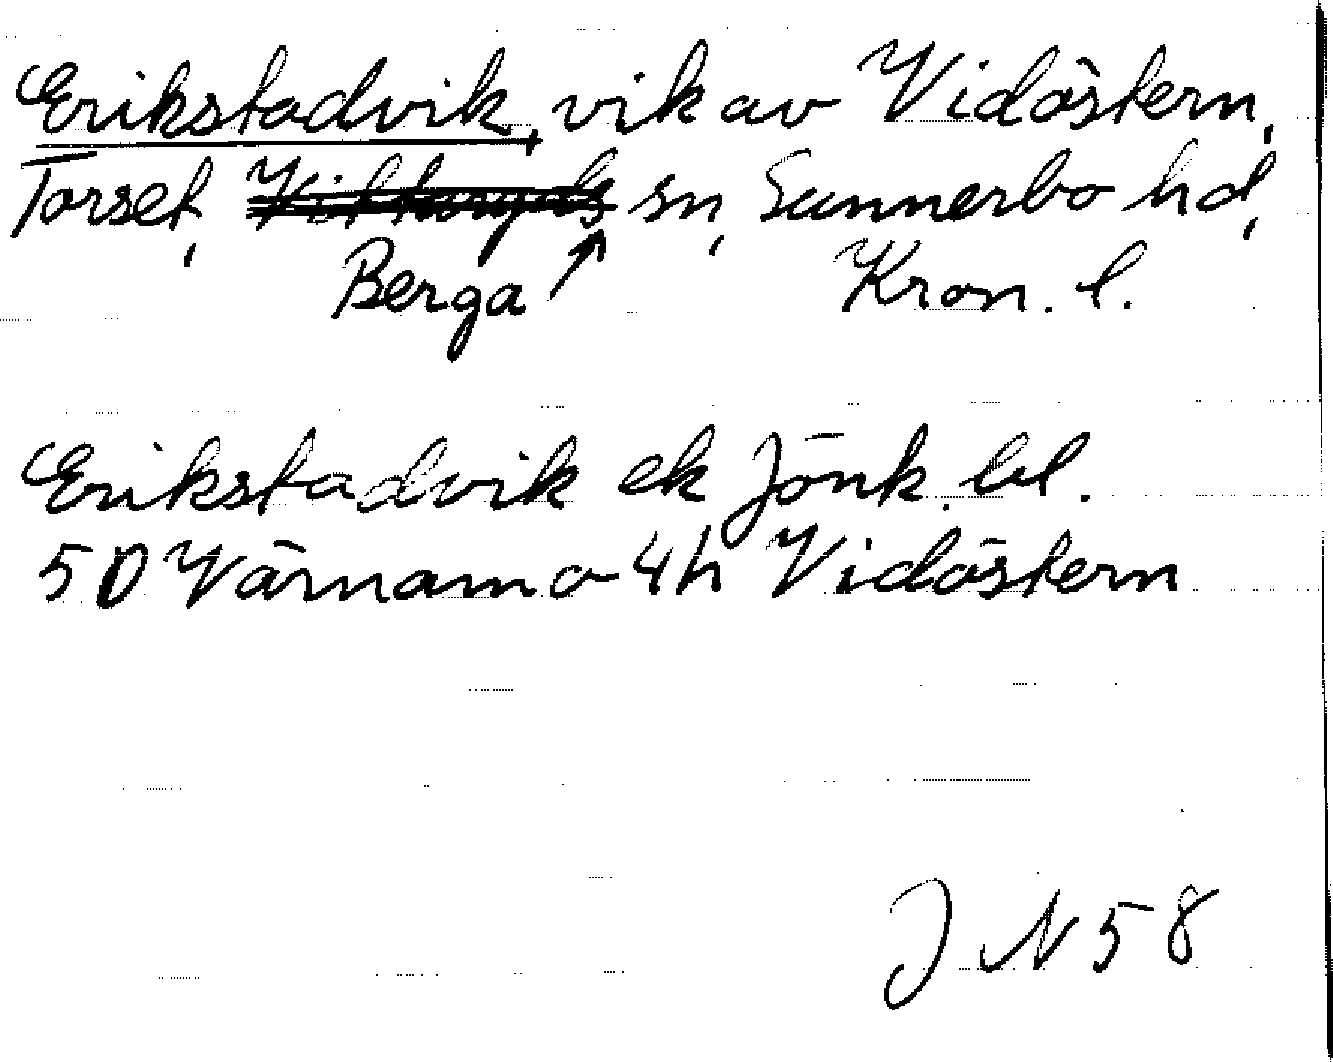 Erikstadvik, vik av Vidöstern,
Torset, Vittaryds sn, Sunnerbo hd,
Berga Kron. l.
Erikstadvik ek Jönk. bl.
5D Värnamo 4h Vidöstern
J N 58